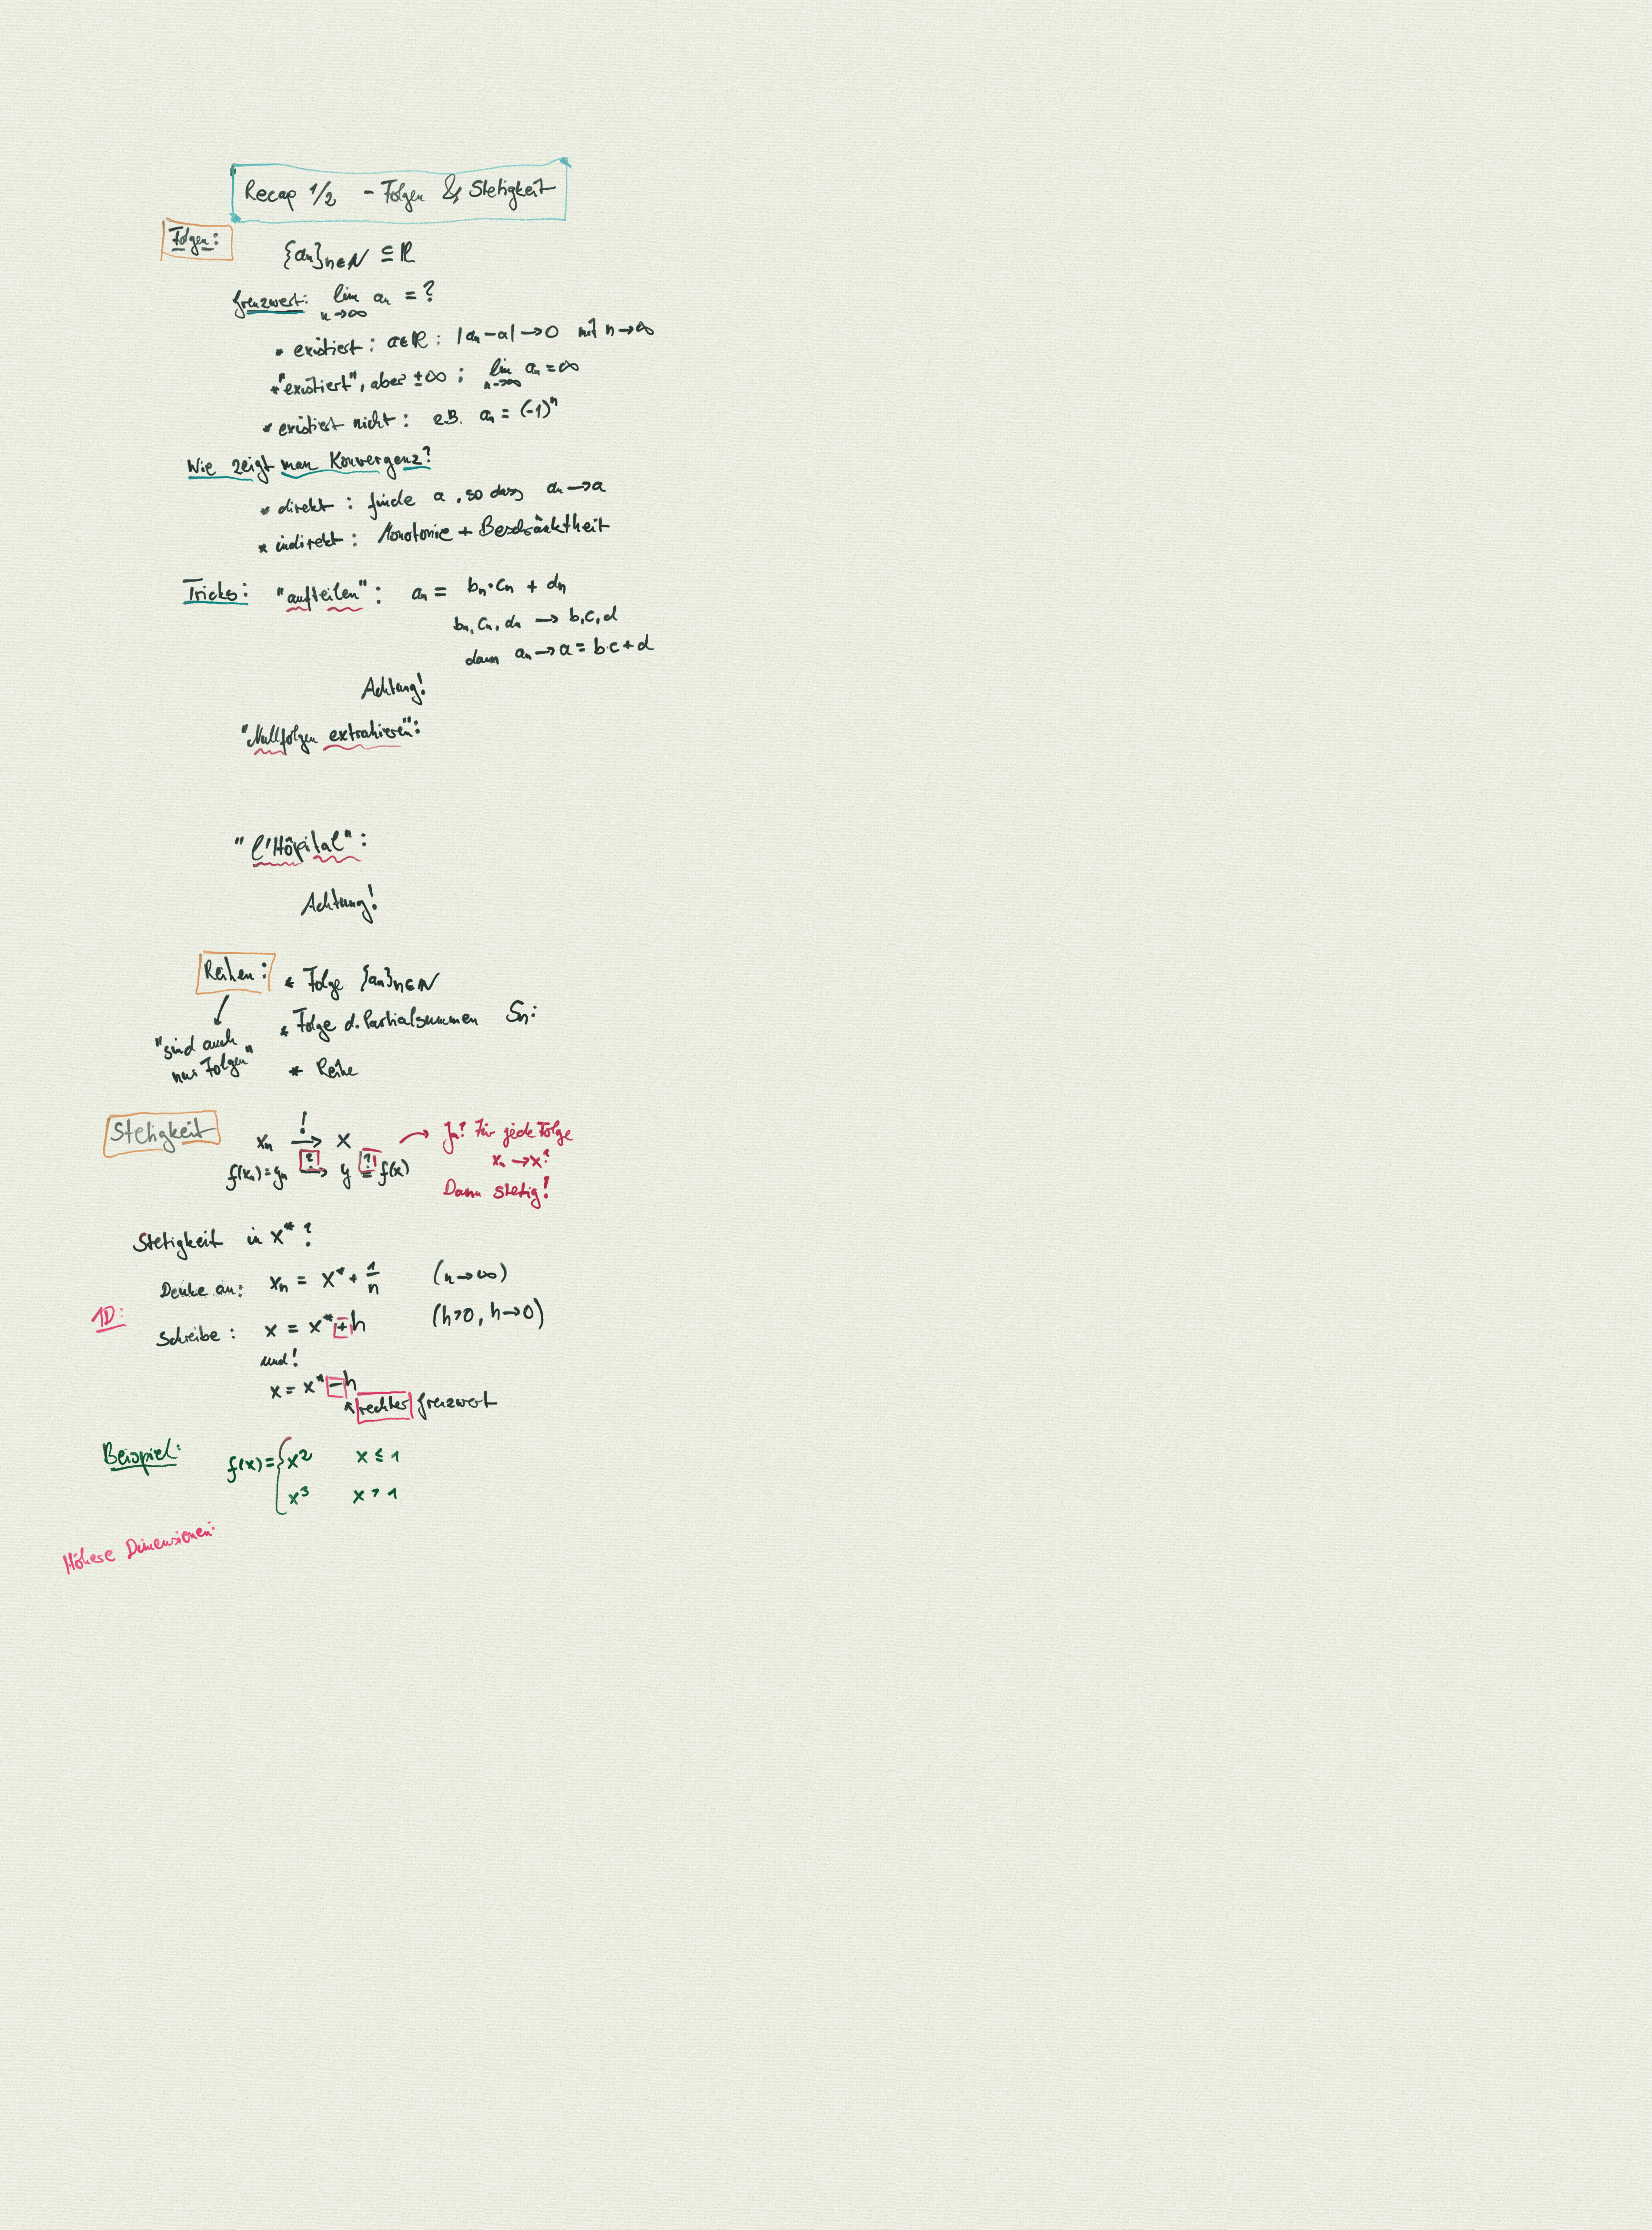 Recap 1/2 - Folgen & Stetigkeit
Folgen:
{aₙ}ₙ∈ℕ ⊆ ℝ
Grenzwert: lim n→∞ aₙ = ?
* existiert: a∈ℝ: |aₙ-a| → 0 mit n→∞
* "existiert", aber ±∞; lim n→∞ aₙ = ∞
* existiert nicht: z.B. aₙ = (-1)ⁿ
Wie zeigt man Konvergenz?
* direkt: finde a, so dass aₙ → a
* indirekt: Monotonie + Beschränktheit
Tricks: "aufteilen": aₙ = bₙ·cₙ + dₙ
bₙ, cₙ, dₙ → b, c, d
dann aₙ → a = b·c + d
Achtung!
"Nullfolgen extrahieren":
"l'Hôpital":
Achtung!
Reihen: * Folge {aₙ}ₙ∈ℕ
* Folge d. Partialsummen Sₙ:
"sind auch
nur Folgen"
* Reihe
Stetigkeit
xₙ →! x
f(xₙ) = yₙ →? y =? f(x)
Ja? Für jede Folge
xₙ → x?
Dann stetig!
Stetigkeit in x*?
Denke an: xₙ = x* + 1/n (n→∞)
1D:
Schreibe: x = x* + h (h>0, h→0)
und!
x = x* - h
rechter Grenzwert
Beispiel: f(x) = { x² x ≤ 1
x³ x > 1
Höhere Dimensionen: